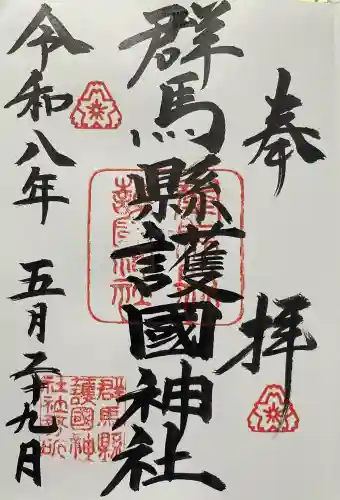 奉拝
群馬縣護國神社
令和八年
五月二十九日
群馬縣
護國神
社社務所